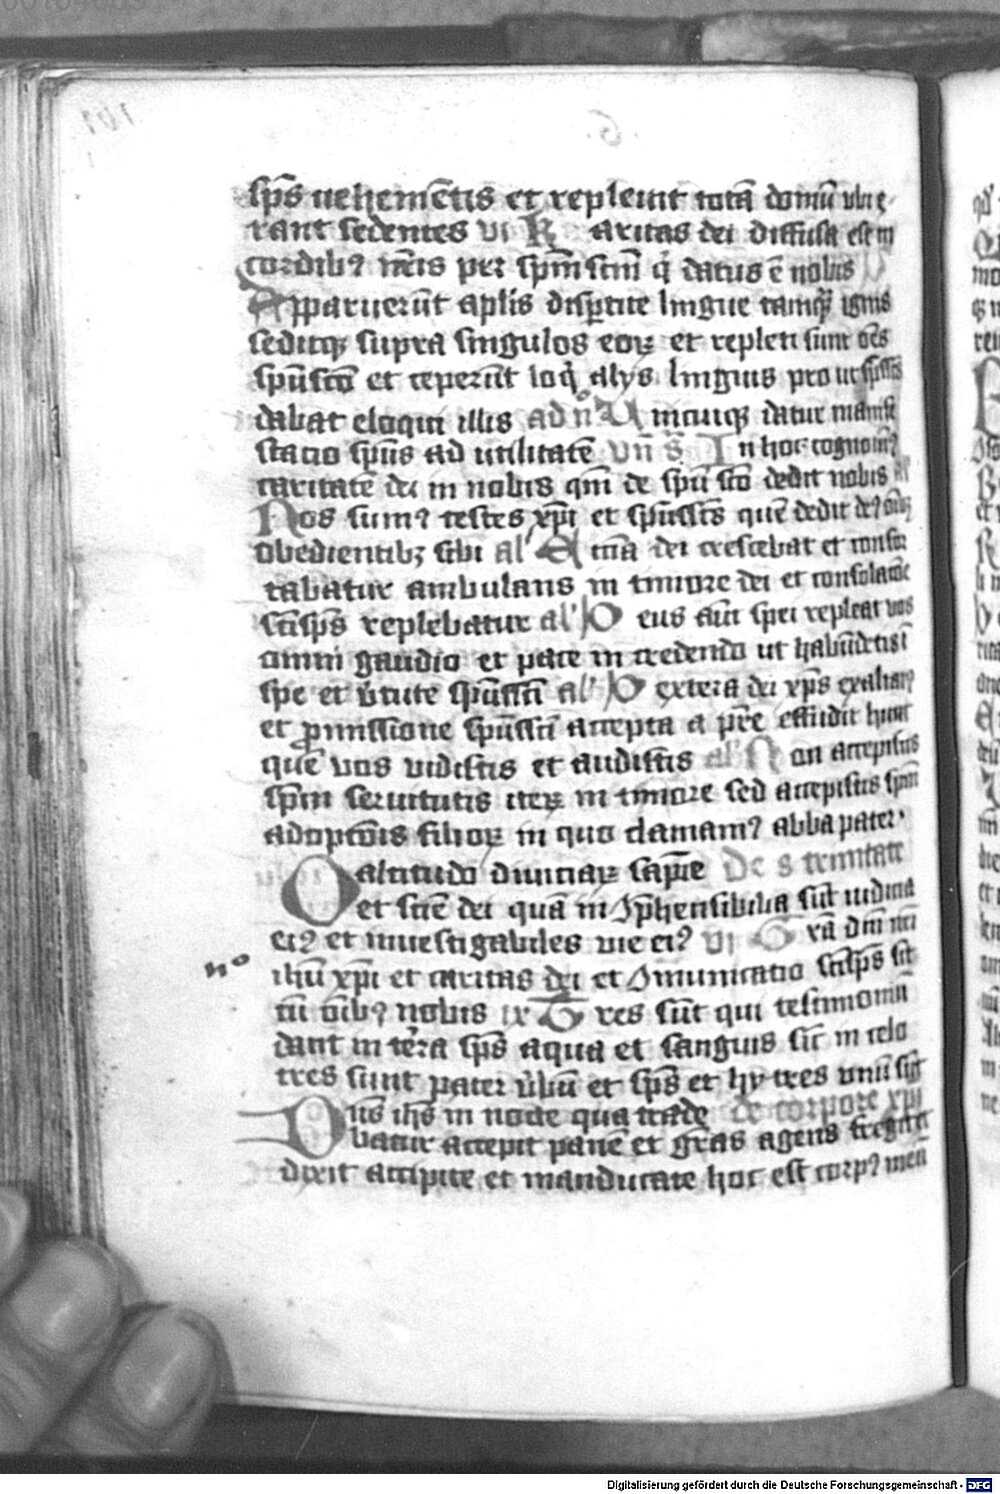 sp̄s uehemētis et repleuit totā domū vbi e
rant sedentes vi K aritas dei diffusa est in
cordibꝰ nr̄is per sp̄m sc̄m q̄ datus ē nobis
Apparuerūt apl̄is disp̄tite lingue tamq̄ ignis
seditqꝫ supra singulos eoꝝ et repleti sunt oēs
sp̄usc̄o et ceperūt loq̄ alijs linguis pro ut sp̄ussc̄s
dabat eloqui illis ad nonā U nicuiqꝫ datur manife
stacio sp̄us ad utilitatē In hoc cognouimꝰ
caritatē dei in nobis qm̄ de sp̄u sc̄o dedit nobis al'
Nos sumꝰ testes xp̄i et sp̄ussc̄s quē dedit deꝰ oībꝫ
obedientibꝫ sibi al' E ccīa dei crescebat et conso
tabatur ambulans in timore dei et consolacōe
sc̄isp̄s replebatur al' D eus aūt spei repleat vos
omni gaudio et pace in credendo ut habūdetis ī
spe et v̄tute sp̄ussc̄i al' D extera dei xp̄s exaltatꝰ
et ꝓmissione sp̄ussc̄i accepta a pr̄e effudit hunc
quē vos vidistis et audistis al' N on accepistis
sp̄m seruitutis iteꝝ in timore sed accepistis sp̄m
adoptōis filioꝝ in quo clamamꝰ abba pater
O altitudo diuiciaꝝ sapīe De s trinitate
et sciē dei quā inꝯp̄hensibilia sūt iudicia
eiꝰ et inuestigabiles vie eiꝰ vi G rā dn̄i nr̄i
ihū xp̄i et caritas dei et ꝯmunicatio sc̄isp̄s sit
cū oībꝰ nobis ix T res sūt qui testimoniū
dant in terra sp̄s aqua et sanguis sic in celo
tres sunt pater v̄bū et sp̄s et hij tres unū sūt
Dn̄s ih̄s in nocte qua trade de corpore xp̄i
batur accepit panē et gr̄as agens fregit et
dixit accipite et manducate hoc est corpꝰ meū
Digitalisierung gefördert durch die Deutsche Forschungsgemeinschaft - DFG